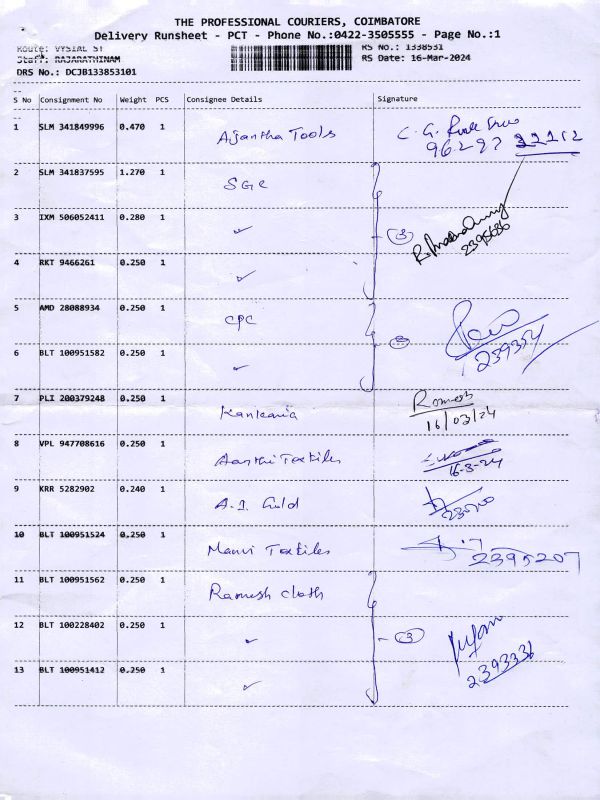 THE PROFESSIONAL COURIERS, COIMBATORE
Delivery Runsheet - PCT - Phone No.:0422-3505555 - Page No.:1
Route: VYSIAL ST RS No.: 1338531
Staff: RAJARATHINAM RS Date: 16-Mar-2024
DRS No.: DCJB133853101
S No Consignment No Weight PCS Consignee Details Signature
1 SLM 341849996 0.470 1 Ajantha Tools C. G.
96297 32212
2 SLM 341837595 1.270 1 SGC
3 IXM 506052411 0.280 1 ✓ 3 2395686
4 RKT 9466261 0.250 1 ✓
5 AMD 28088934 0.250 1 CPC
6 BLT 100951582 0.250 1 ✓ 239354
7 PLI 200379248 0.250 1 Kankaria Romesh
16/03/24
8 VPL 947708616 0.250 1 Aarthi Textiles
16-3-24
9 KRR 5282902 0.240 1 A.1. Guld
10 BLT 100951524 0.250 1 Manvi Textiles 2395207
11 BLT 100951562 0.250 1 Ramesh cloth
12 BLT 100228402 0.250 1 ✓ 3
13 BLT 100951412 0.250 1 ✓ 2393336